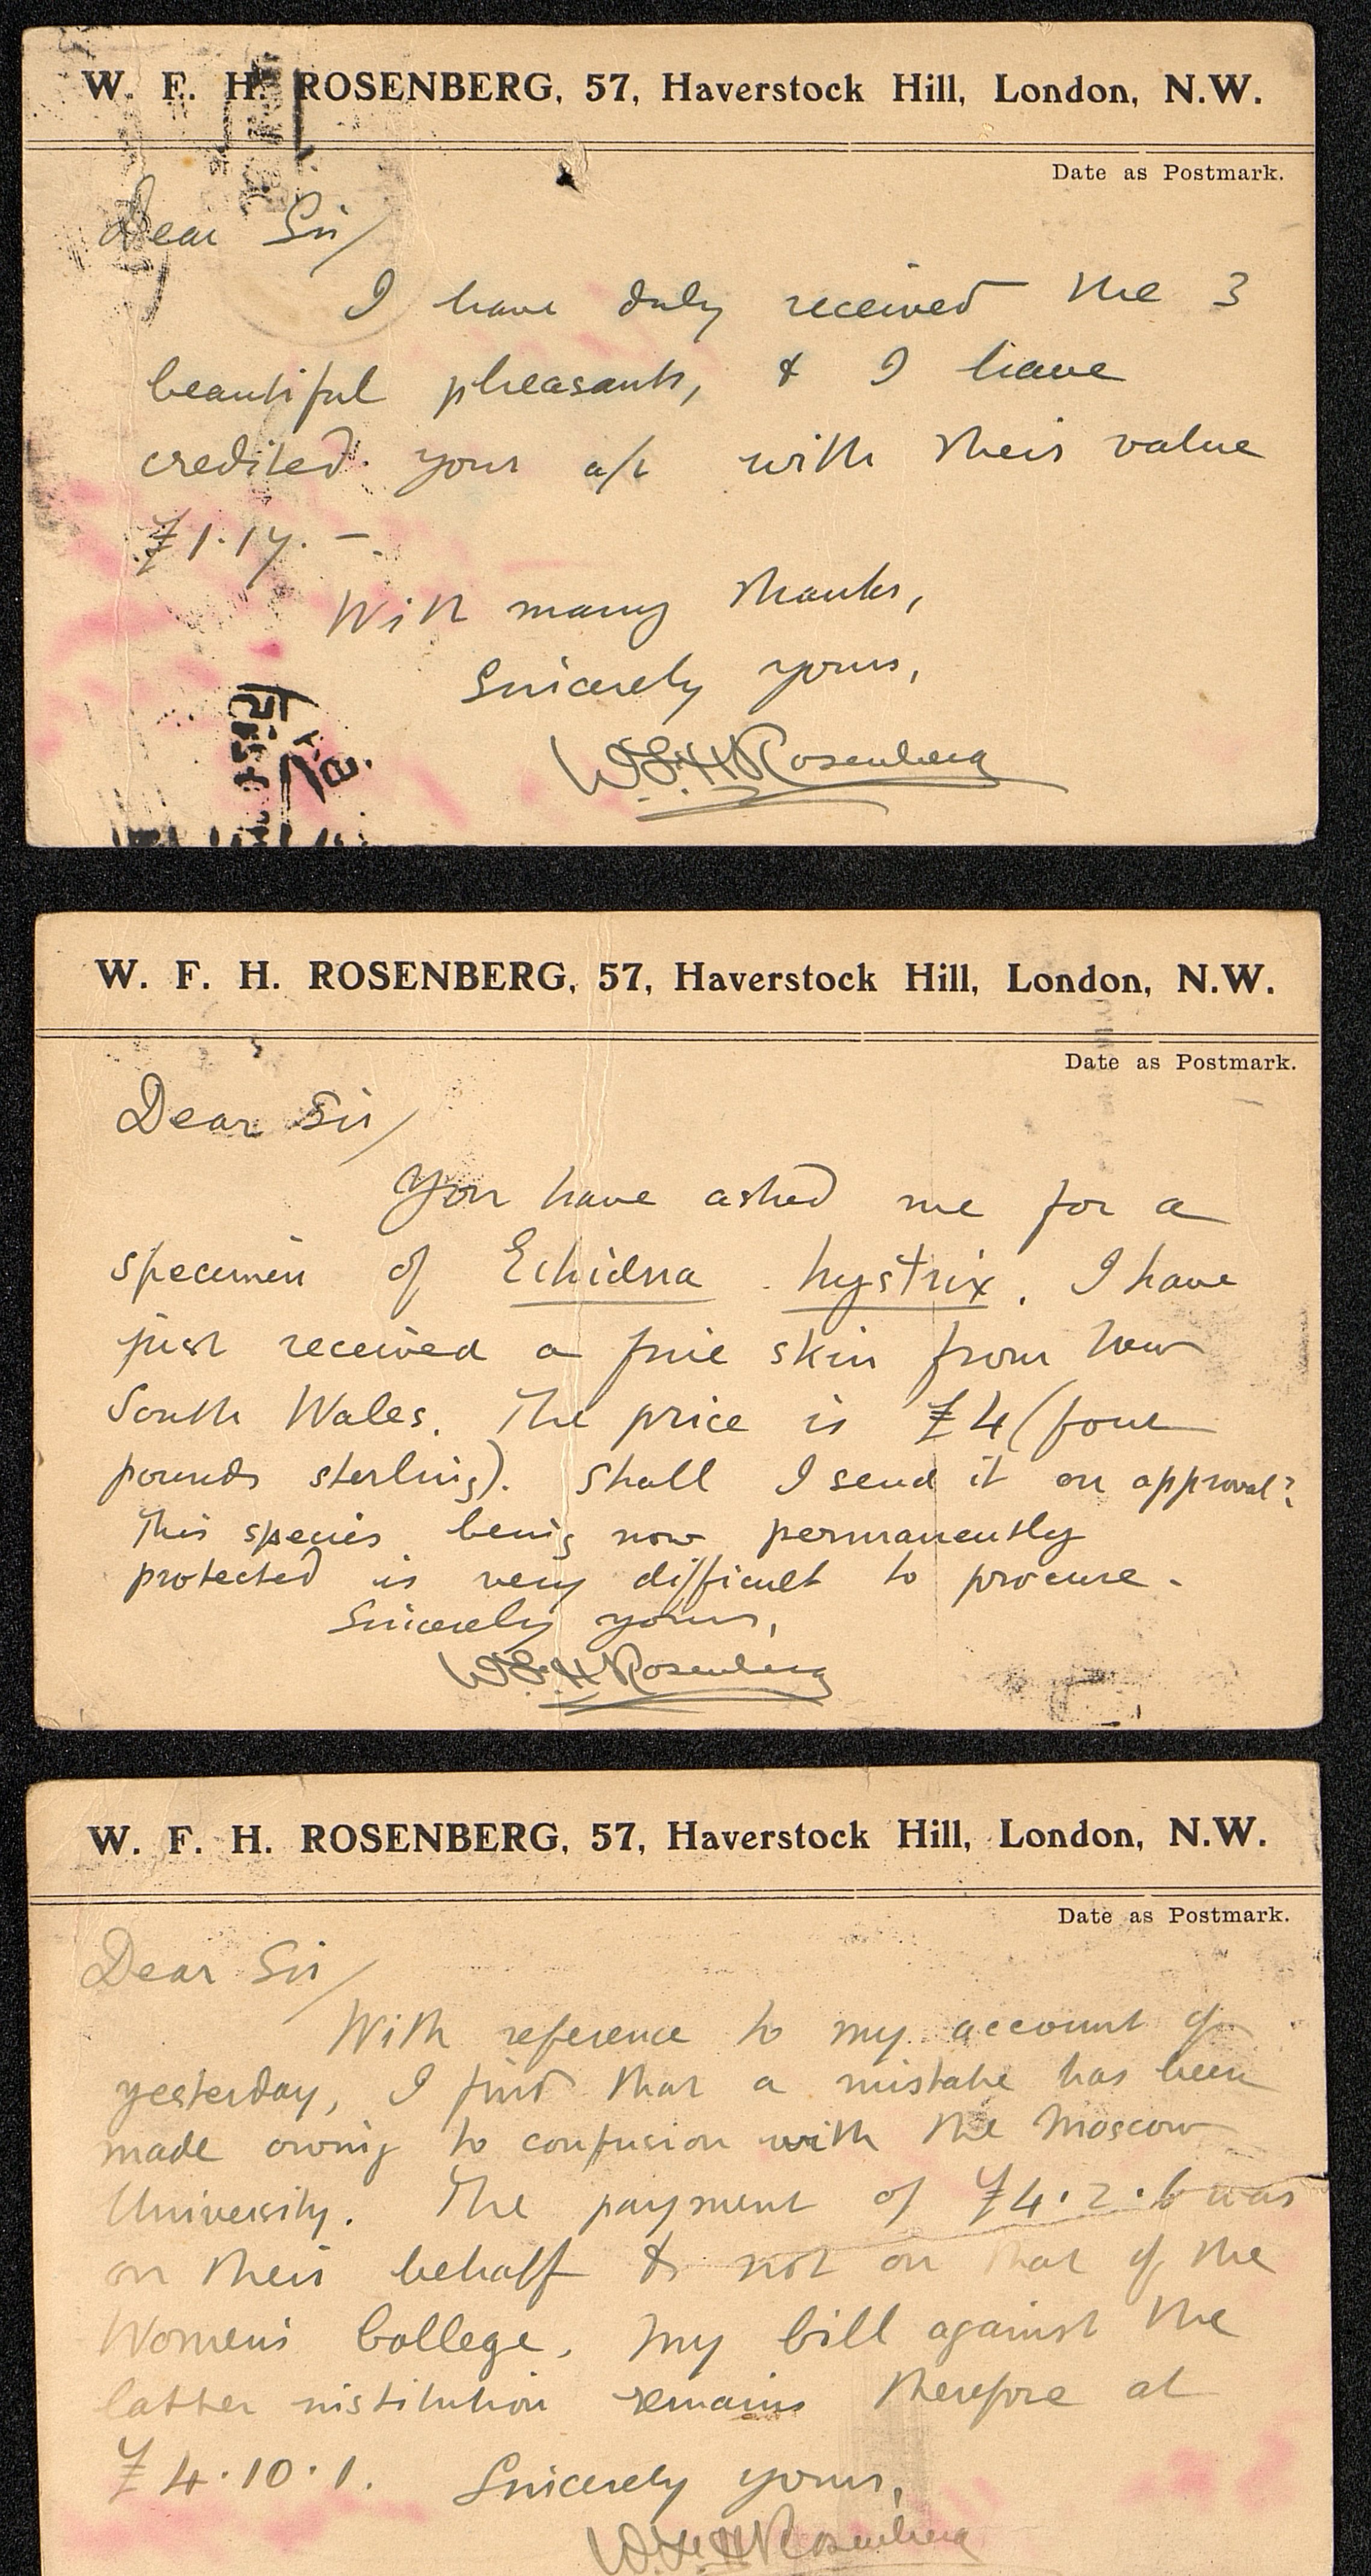 W. F. H. ROSENBERG, 57, Haverstock Hill, London, N.W.
Date as Postmark.
Dear Sir/
I have duly received the 3
beautiful pheasants, & I have
credited your a/c with their value
£1.17. -.
With many thanks,
Sincerely yours,
W.F.H. Rosenberg
W. F. H. ROSENBERG, 57, Haverstock Hill, London, N.W.
Date as Postmark.
Dear Sir/
You have asked me for a
specimen of Echidna hystrix. I have
just received a fine skin from New
South Wales. The price is £4 (four
pounds sterling). Shall I send it on approval?
This species being now permanently
protected is very difficult to procure.
Sincerely yours,
W.F.H. Rosenberg
W. F. H. ROSENBERG, 57, Haverstock Hill, London, N.W.
Date as Postmark.
Dear Sir/
With reference to my account of
yesterday, I find that a mistake has been
made owing to confusion with the Moscow
University. The payment of £4.2.6 was
on their behalf & not on that of the
Women's College. My bill against the
latter institution remains therefore at
£4.10.1. Sincerely yours,
W.F.H. Rosenberg